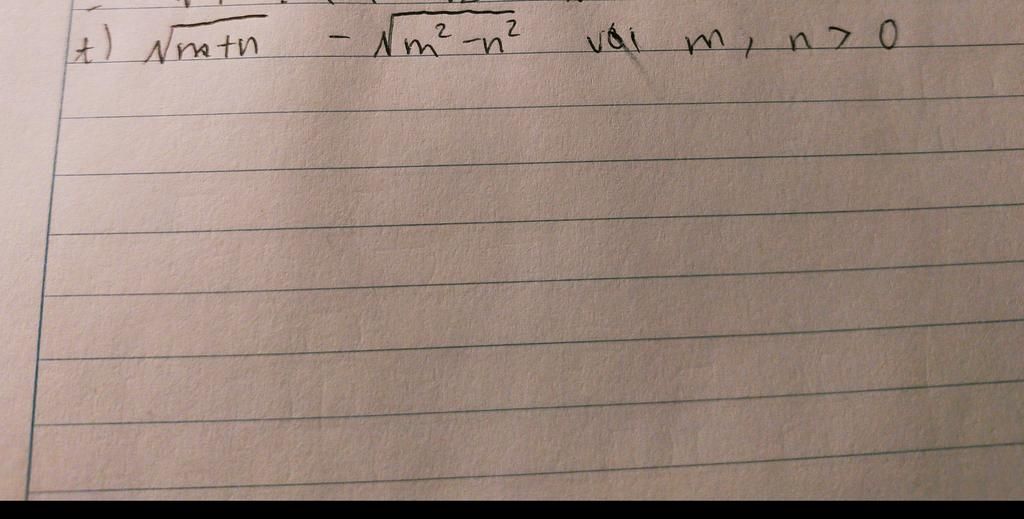 t) √m+n - √m² -n² với m, n > 0